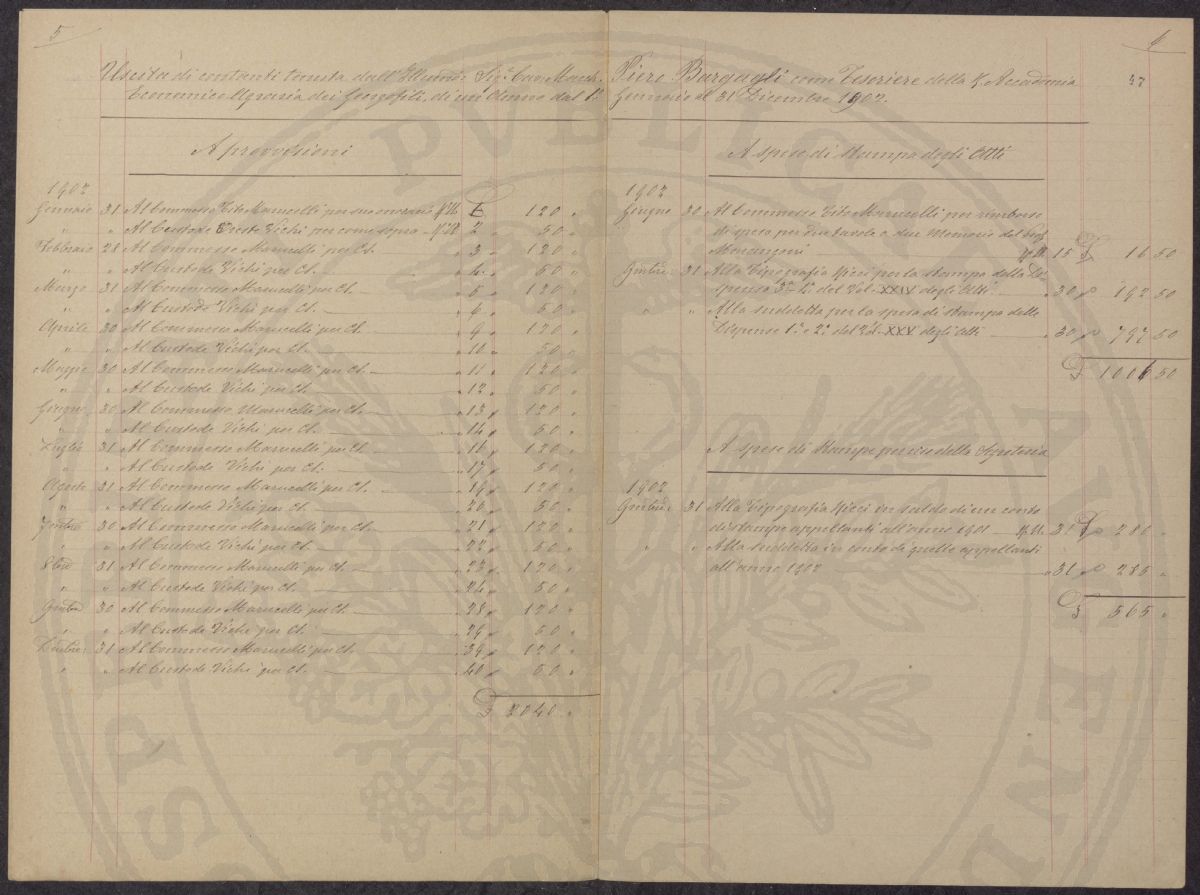 5
Uscita di contanti tenuta dall'Illmo: Sigr. Cav: March:
Economico Agraria dei Georgofili, di un Anno dal 1°
A provvisioni
1902
Gennaio 31 Al Commesso Tito Marucelli per suo onorario N.M. 1 £ 120 "
" " Al Custode Oreste Vichi per come sopra 2 " 50 "
Febbraio 28 Al Commesso Marucelli per Ct. " 3 " 120 "
" " Al Custode Vichi per Ct. " 4 " 50 "
Marzo 31 Al Commesso Marucelli per Ct. " 5 " 120 "
" " Al Custode Vichi per Ct. " 6 " 50 "
Aprile 30 Al Commesso Marucelli per Ct. " 9 " 120 "
" " Al Custode Vichi per Ct. " 10 " 50 "
Maggio 30 Al Commesso Marucelli per Ct. " 11 " 120 "
" " Al Custode Vichi per Ct. " 12 " 50 "
Giugno 30 Al Commesso Marucelli per Ct. " 13 " 120 "
" " Al Custode Vichi per Ct. " 14 " 50 "
Luglio 31 Al Commesso Marucelli per Ct. " 16 " 120 "
" " Al Custode Vichi per Ct. " 17 " 50 "
Agosto 31 Al Commesso Marucelli per Ct. " 19 " 120 "
" " Al Custode Vichi per Ct. " 20 " 50 "
7mbre 30 Al Commesso Marucelli per Ct. " 21 " 120 "
" " Al Custode Vichi per Ct. " 22 " 50 "
8bre 31 Al Commesso Marucelli per Ct. " 23 " 120 "
" " Al Custode Vichi per Ct. " 24 " 50 "
9mbre 30 Al Commesso Marucelli per Ct. " 28 " 120 "
" " Al Custode Vichi per Ct. " 29 " 50 "
Dmbre: 31 Al Commesso Marucelli per Ct. " 39 " 120 "
" " Al Custode Vichi per Ct. " 40 " 50 "
£ 2040 "
6
37
Piero Bargagli come Tesoriere della R. Accademia
Gennaio al 31 Dicembre 1902.
A spese di stampa degli Atti
1902
Giugno 30 Al Commesso Tito Marucelli per rimborso
di spesa per due tavole e due Memorie del
Marangoni N.M. 15 £ 16 50
31 Alla Tipografia Ricci per la stampa della Di-
spensa del Vol. XXIV degli Atti " 30 " 192 50
" " Alla suddetta per la spesa di stampa delle
Dispense 1a e 2a del Vol. XXV degli Atti " 30 " 797 50
£ 1006 50
A spese di Stampe per uso della Segreteria
1902
31 Alla Tipografia Ricci in saldo di un conto
di stampe appellanti all'anno 1901 N.M. 31 £ 280 "
" " Alla suddetta in conto di quelle appellanti
all'anno 1902 " 31 " 285 "
£ 565 "
PVBLICAE